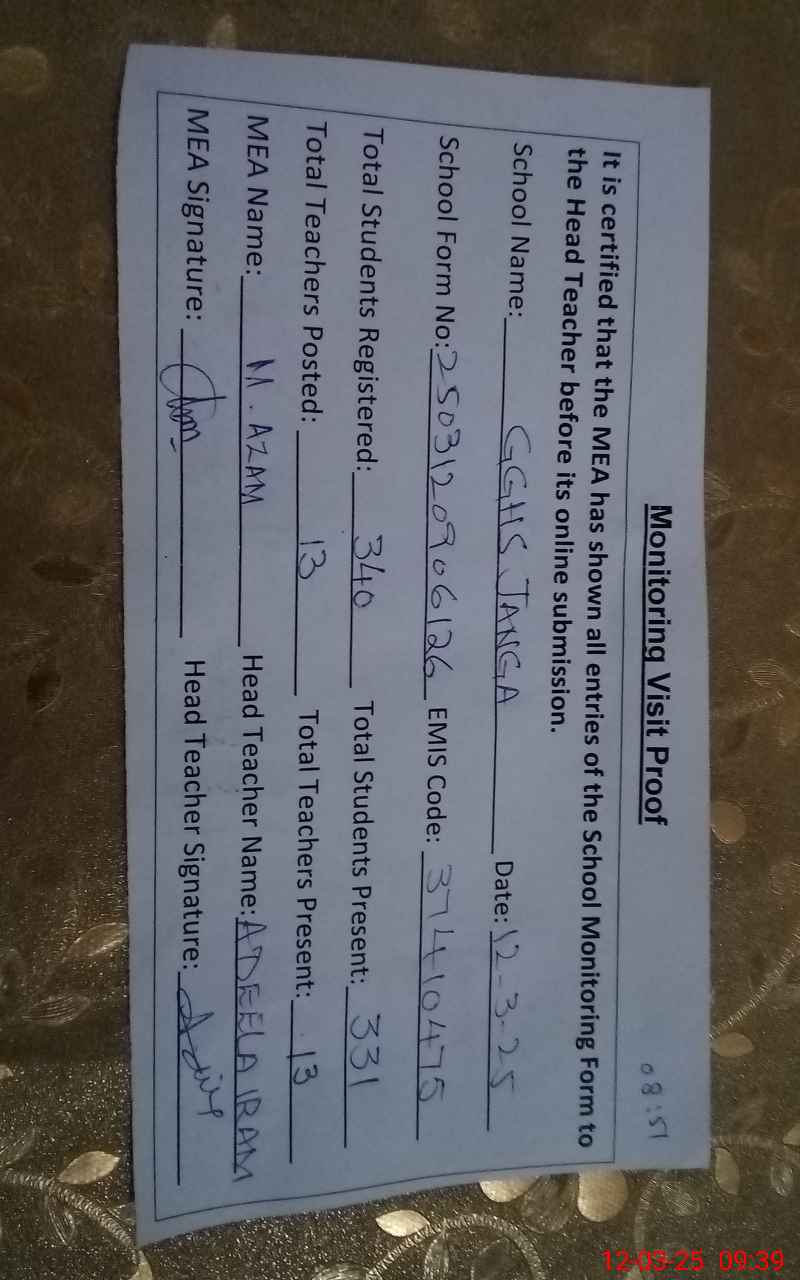 08:51
Monitoring Visit Proof
It is certified that the MEA has shown all entries of the School Monitoring Form to
the Head Teacher before its online submission.
School Name: GGHS JANGA Date: 12-3-25
School Form No: 2503120906126 EMIS Code: 37410475
Total Students Registered: 340 Total Students Present: 331
Total Teachers Posted: 13 Total Teachers Present: 13
MEA Name: M. AZAM Head Teacher Name: ADEELA IRAM
MEA Signature: Head Teacher Signature:
12-03-25 09:39